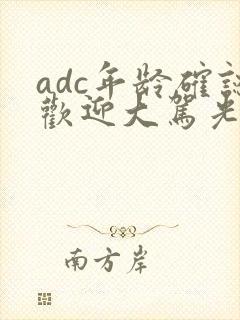 adc年龄確認
歡迎大駕光
南方岸